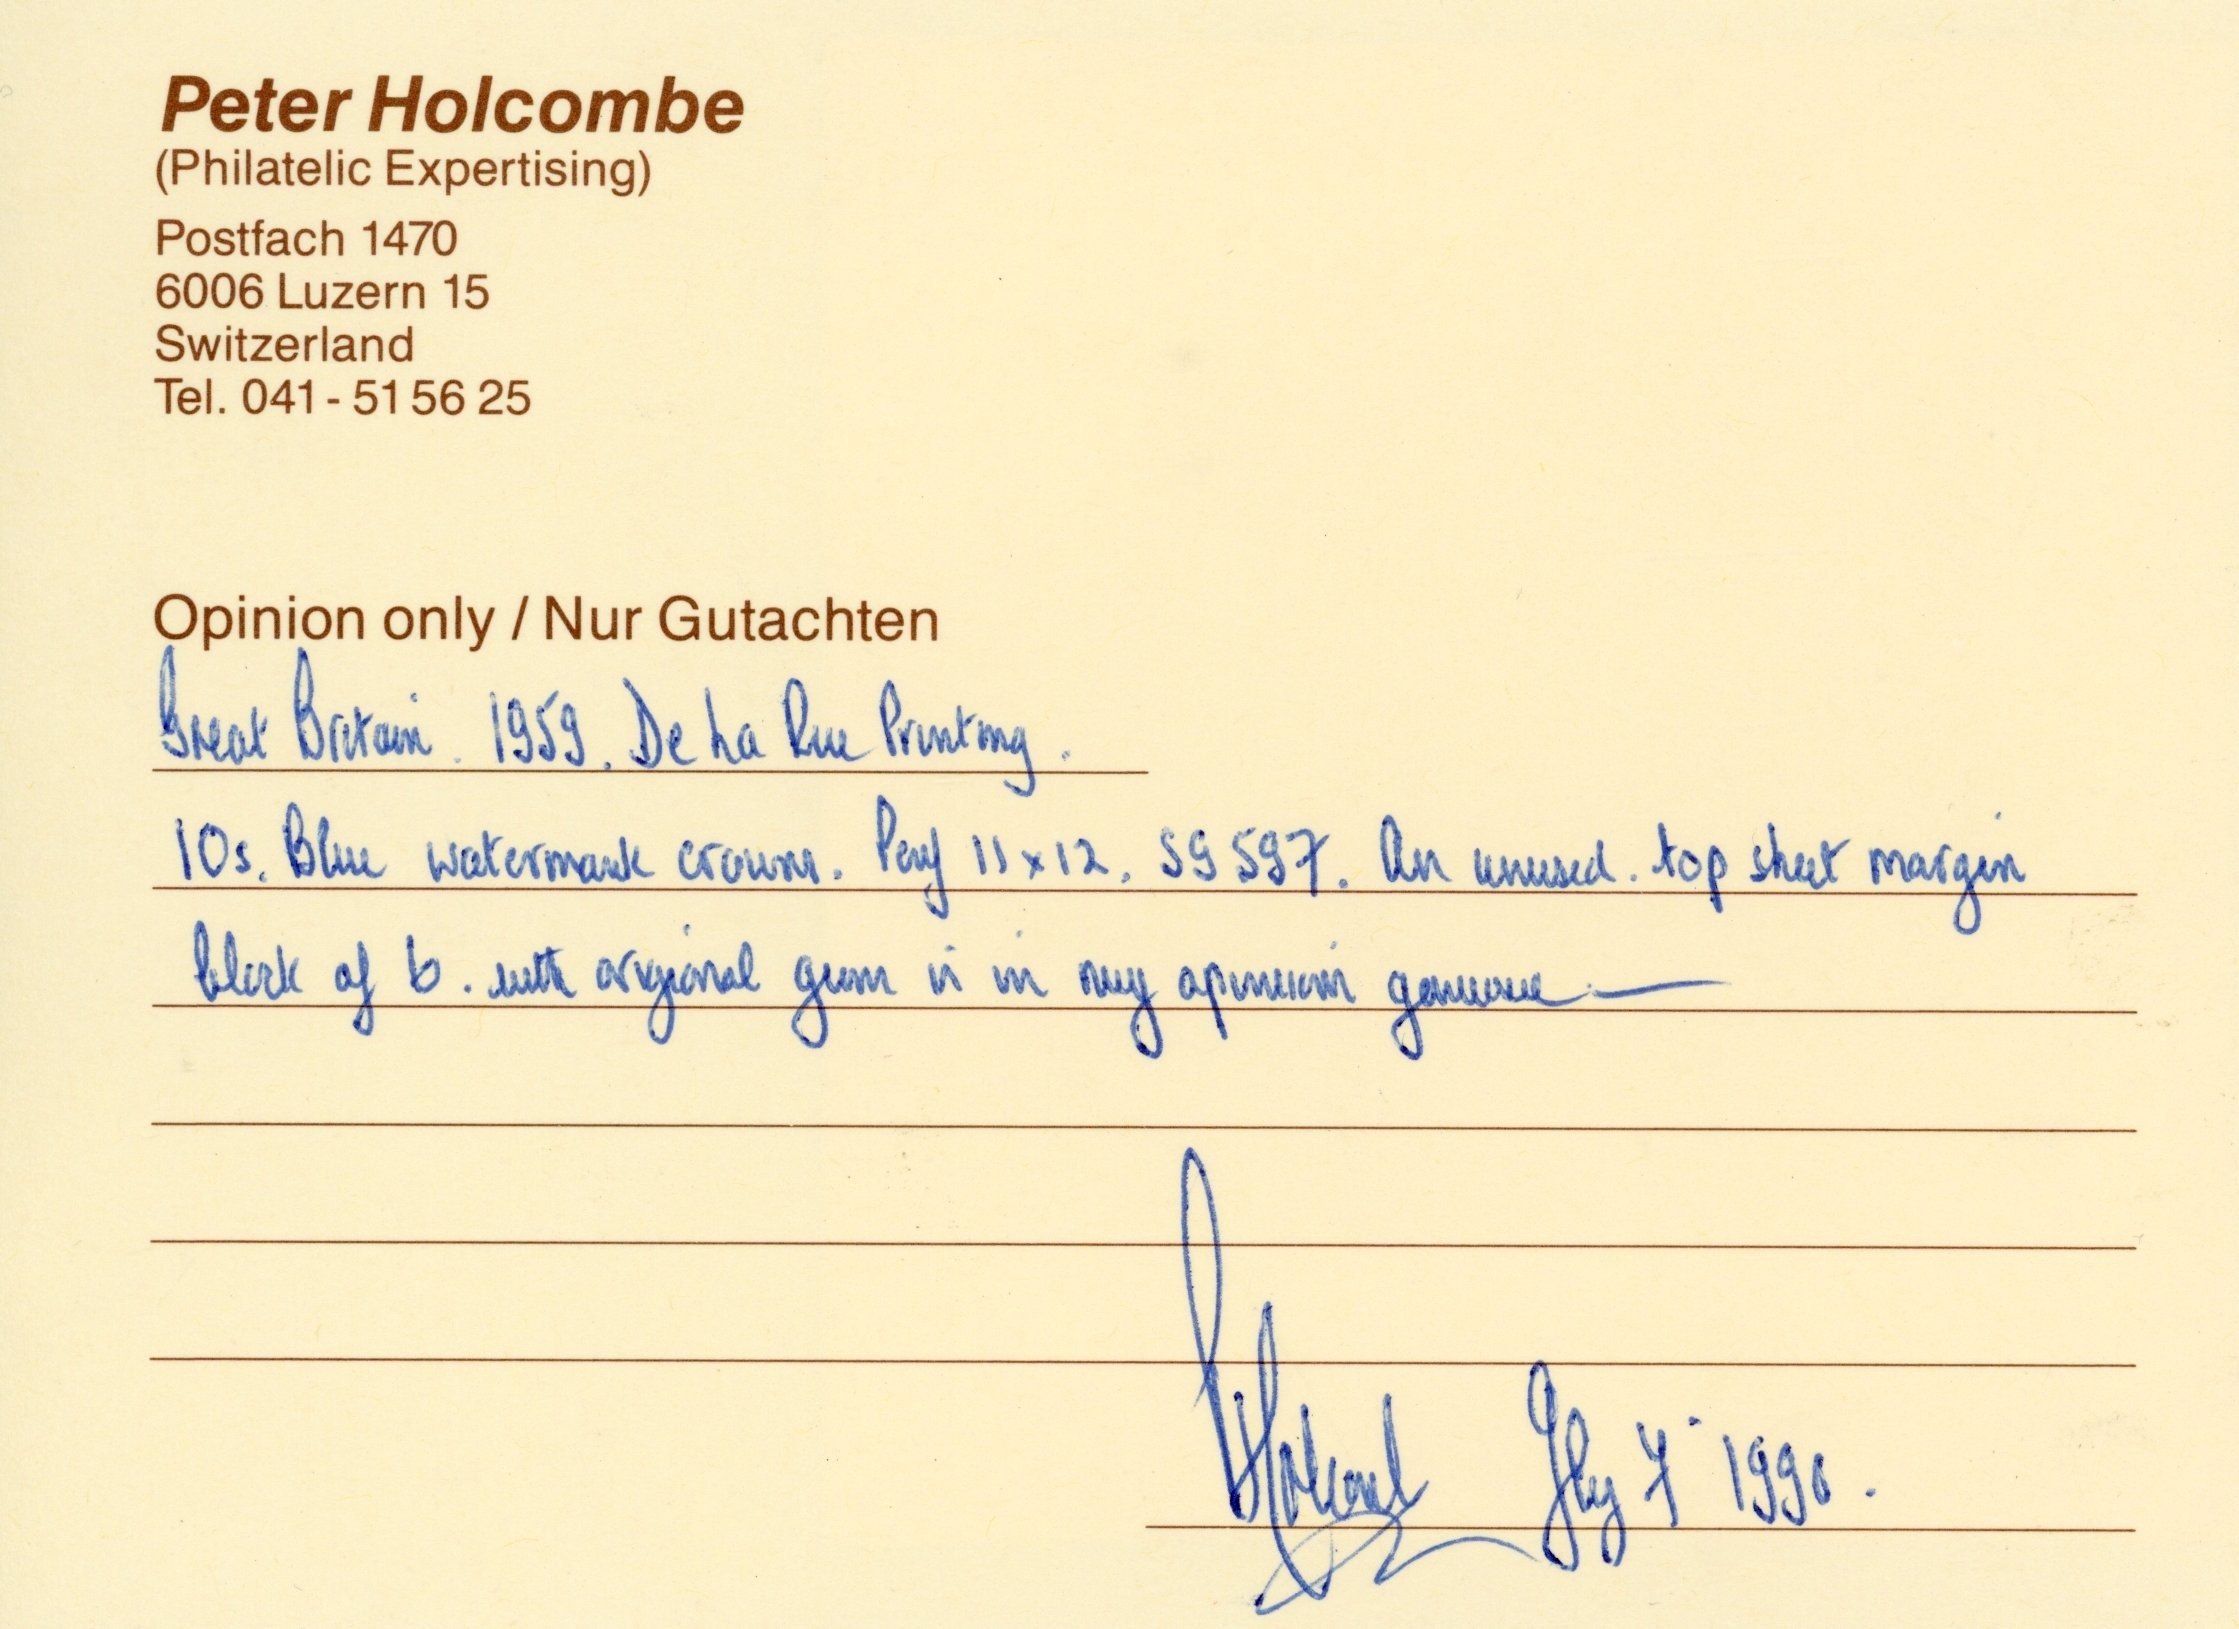 Peter Holcombe
(Philatelic Expertising)
Postfach 1470
6006 Luzern 15
Switzerland
Tel. 041 - 51 56 25
Opinion only / Nur Gutachten
Great Britain. 1959. De La Rue Printing.
10s. Blue watermark crowns. Perf 11 x 12. SG 597. An unused. top sheet margin
block of 6. with original gum is in my opinion genuine —
PHolcombe July 7 1990.